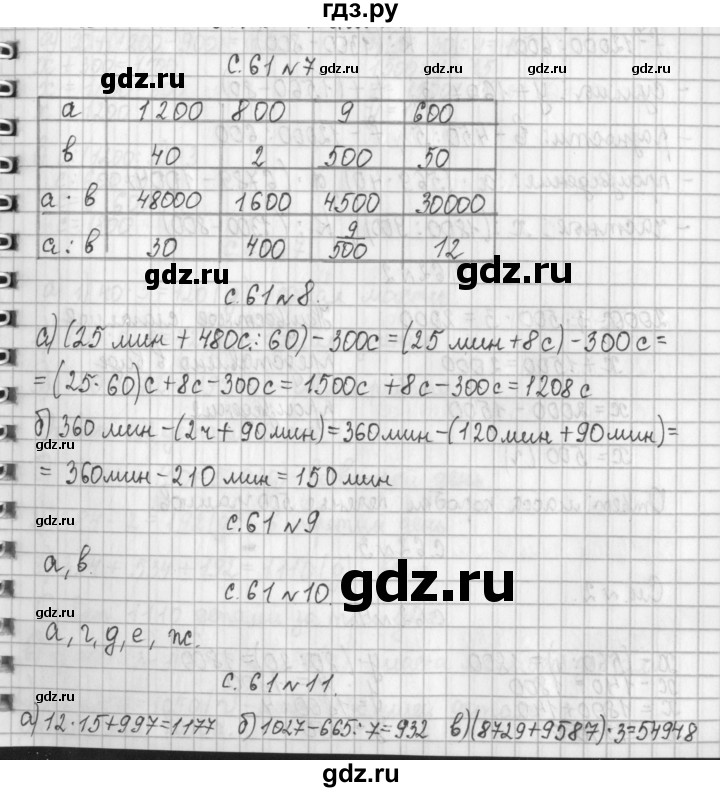 гдз.ру
с. 61 №7
gdz.ru gdz.ru gdz.ru
а 1200 800 9 600
в 40 2 500 50
а · в 48000 1600 4500 30000
а : в 30 400 9/500 12
gdz.ru gdz.ru
с. 61 №8.
а) (25 мин + 480с : 60) - 300с = (25 мин + 8с) - 300с =
= (25 · 60)с + 8с - 300с = 1500с + 8с - 300с = 1208 с
gdz.ru gdz.ru gdz.ru
б) 360 мин - (2ч + 90мин) = 360мин - (120мин + 90 мин) =
= 360мин - 210 мин = 150 мин
gdz.ru с. 61 №9 gdz.ru
а, в.
gdz.ru с. 61 №10. gdz.ru
а, г, д, е, ж.
gdz.ru с. 61 №11. gdz.ru
а) 12 · 15 + 997 = 1177 б) 1027 - 665 : 7 = 932 в) (8729 + 9587) · 3 = 54948
gdz.ru